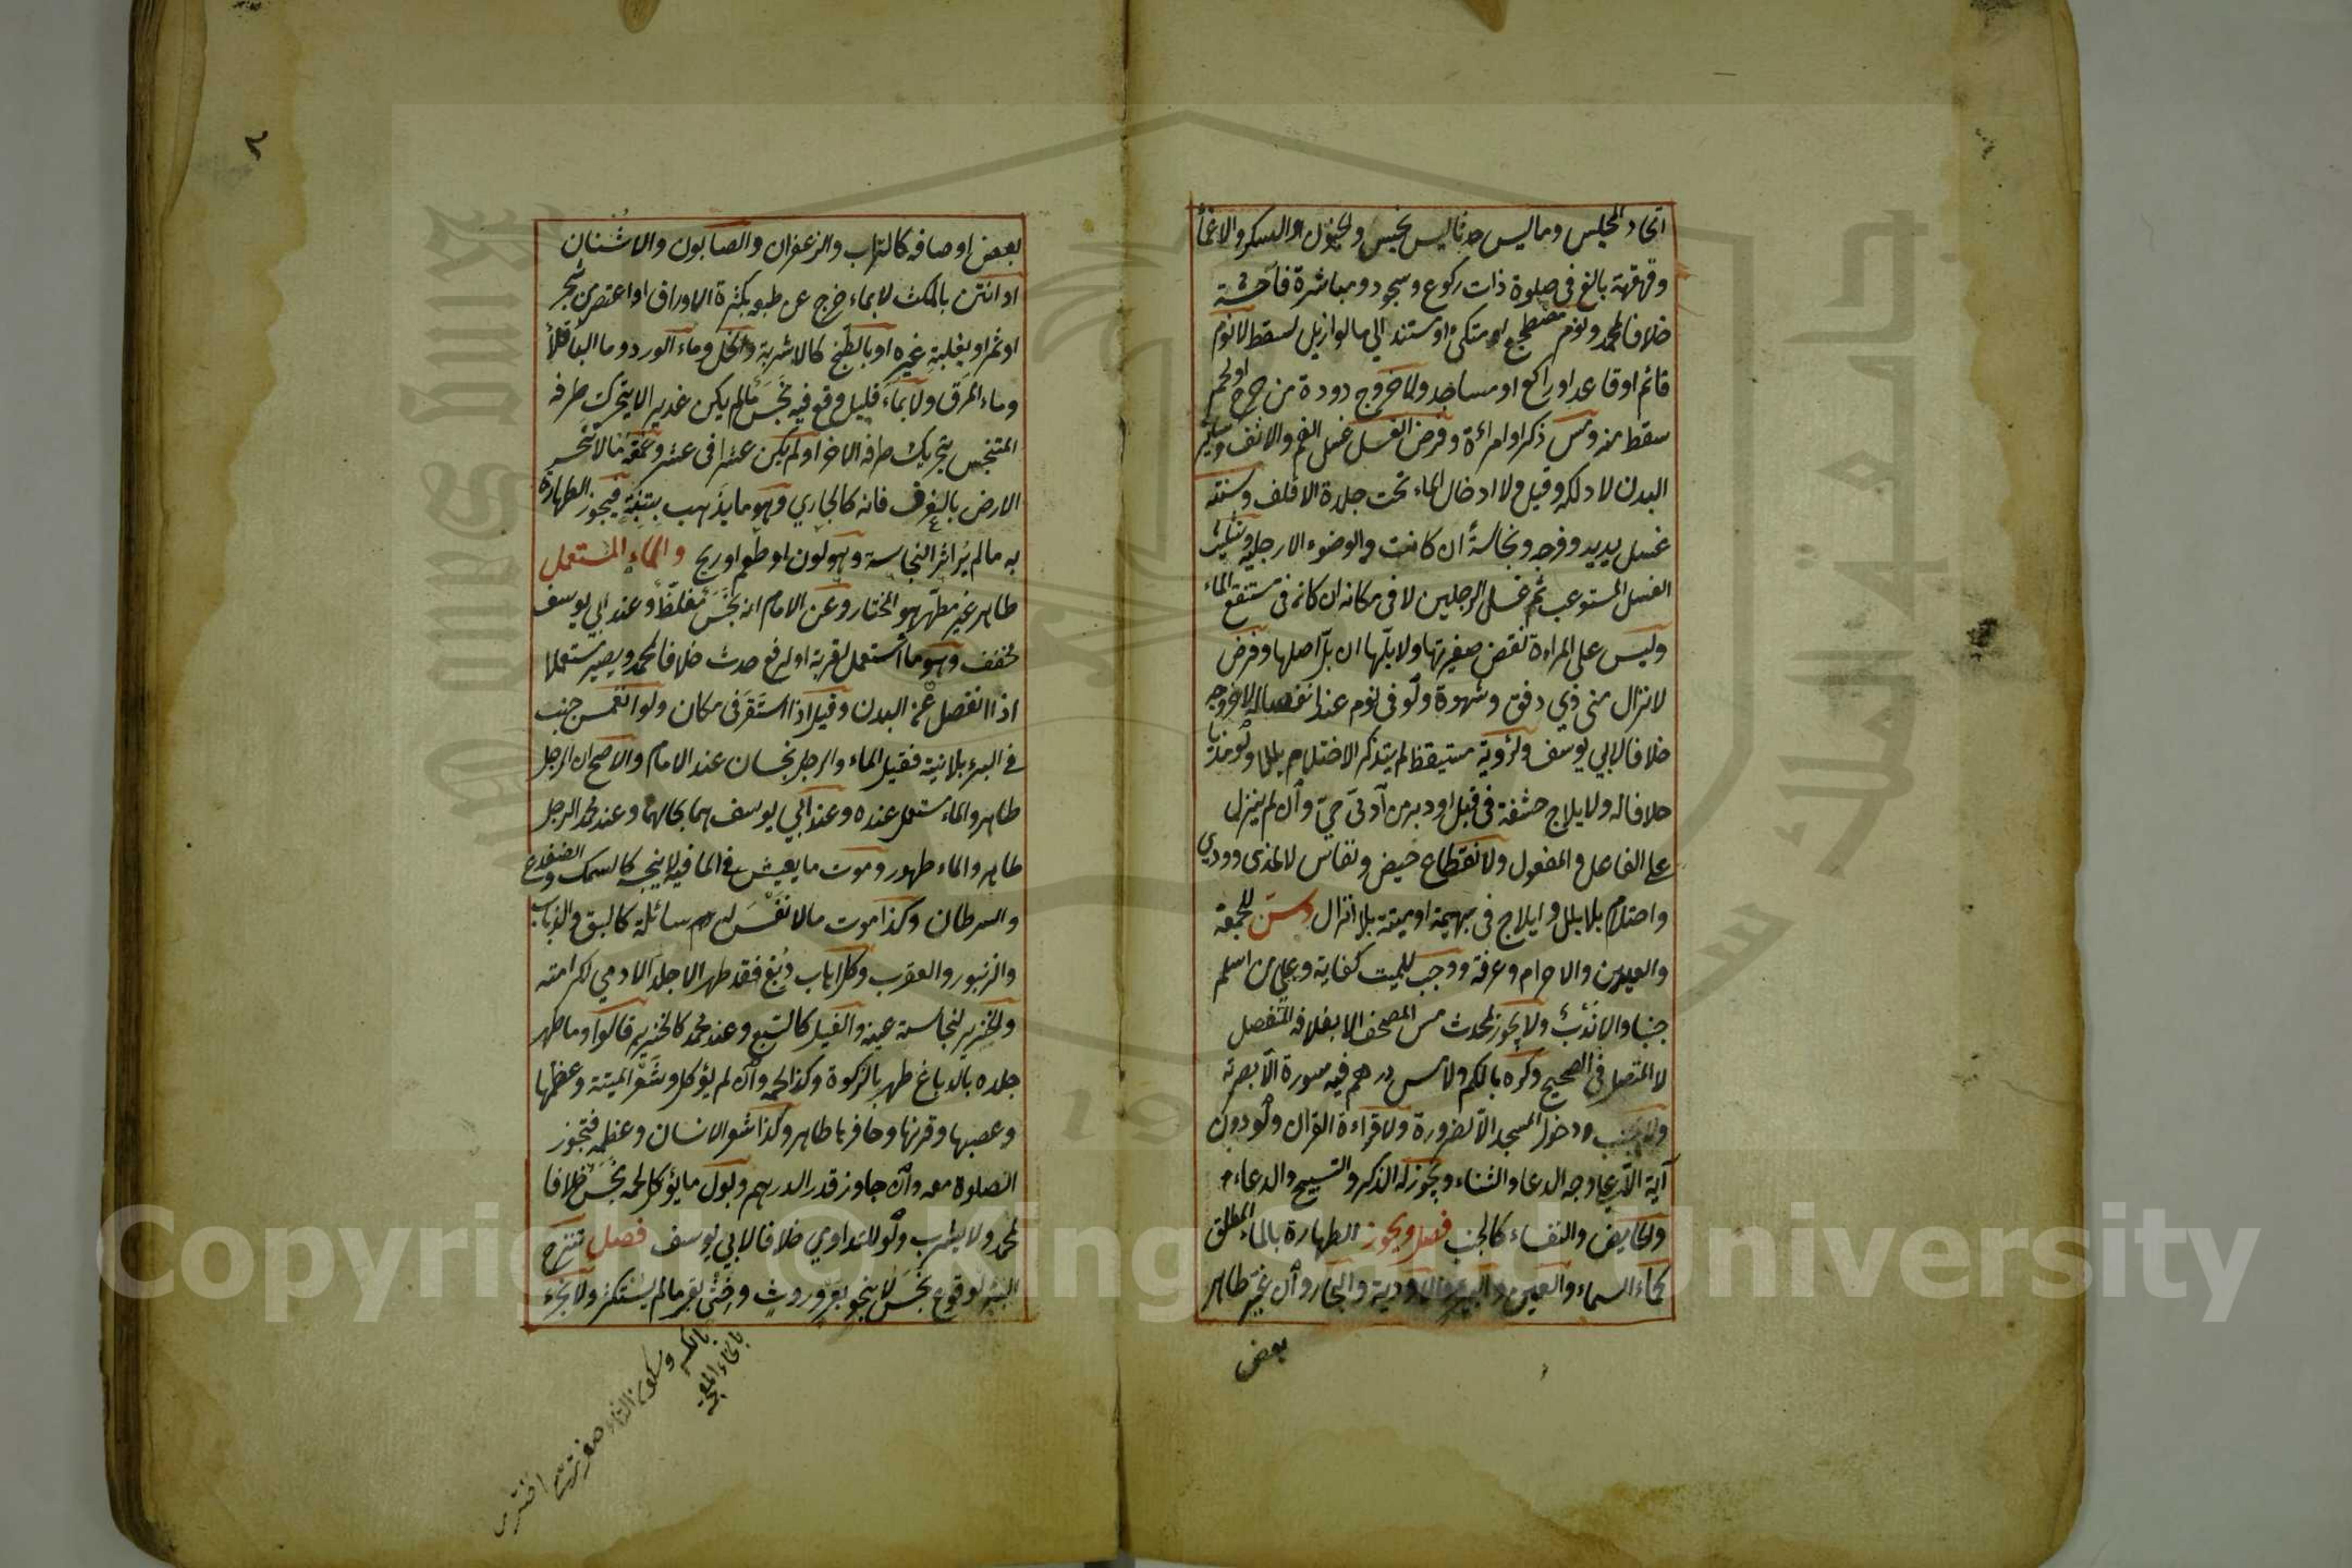 اتحاد المجلس وما ليس حدثا ليس بنجس والجنون والسكر والاغماء
وقهقهة بالغ فى صلوة ذات ركوع وسجود ومباشرة فاحشة
خلافا لمحمد ونوم مضطجع او متكئ او مستند الى ما لو ازيل لسقط لا نوم
قائم او قاعد او راكع او ساجد ولا خروج دودة من جرح او لحم
سقط منه ومس ذكر او امراءة وفرض الغسل غسل الفم والانف وسائر
البدن لا دلكه وقيل ولا ادخال الماء تحت جلدة الاقلف وسنته
غسل يديه وفرجه ونجاسة ان كانت والوضوء الا رجليه وتثليث
الغسل المستوعب ثم غسل الرجلين لا فى مكانه ان كان فى مستنقع الماء
وليس على المراءة نقض ضفيرتها ولا بلها ان بل اصلها وفرض
لانزال منى ذي دفق وشهوة ولو فى نوم عند انفصاله لا خروجه
خلافا لابي يوسف ولرؤية مستيقظ لم يتذكر الاحتلام بللا ولو مذيا
خلافا له ولايلاج حشفة فى قبل او دبر من آدمى حي وان لم ينزل
على الفاعل والمفعول ولانقطاع حيض ونفاس لا لمذى وودي
واحتلام بلا بلل وايلاج فى بهيمة او ميتة بلا انزال وسن للجمعة
والعيدين والاحرام وعرفة ووجب للميت كفاية وعلى من اسلم
جنبا والا ندب ولا يجوز لمحدث مس المصحف الا بغلافه المنفصل
لا المتصل فى الصحيح وكره بالكم ولا مس درهم فيه سورة الا بصرته
ولا لجنب ودخول المسجد الا لضرورة ولا قراءة القرآن ولو دون
آية الا على وجه الدعا والثناء ويجوز له الذكر والتسبيح والدعاء
والحايض والنفساء كالجنب فصل ويجوز الطهارة بالماء المطلق
كماء السماء والعين والبير والاودية والبحار وان غير طاهر
بعض
٣
بعض اوصافه كالتراب والزعفران والصابون والاشنان
او انتن بالمكث لا بماء خرج عن طبعه بكثرة الاوراق او اعتصر من شجر
او ثمر او بغلبة غيره او بالطبخ كالاشربة والخل وماء الورد وماء الباقلا
وماء المرق ولا بماء قليل وقع فيه نجس ما لم يكن غديرا لا يتحرك طرفه
المتنجس بتحريك طرفه الاخر او لم يكن عشرا فى عشر وعمقه ما لا تنحسر
الارض بالغرف فانه كالجاري وهو ما يذهب بتبنة فيجوز الطهارة
به ما لم ير اثر النجاسة وهو لون او طعم او ريح والماء المستعمل
طاهر غير مطهر هو المختار وعن الامام انه نجس مغلظ وعند ابي يوسف
مخفف وهو ما استعمل لقربة او لرفع حدث خلافا لمحمد ويصير مستعملا
اذا انفصل عن البدن وقيل اذا استقر فى مكان ولو انغمس جنب
فى البئر بلا نية فقيل الماء والرجل نجسان عند الامام والاصح ان الرجل
طاهر والماء مستعمل عنده وعند ابي يوسف هما بحالهما وعند محمد الرجل
طاهر والماء طهور وموت ما يعيش فى الما فيه لا ينجسه كالسمك والضفدع
والسرطان وكذا موت ما لا نفس له سائلة كالبق والذباب
والزنبور والعقرب وكل اهاب دبغ فقد طهر الا جلد الادمي لكرامته
والخنزير لنجاسة عينه والفيل كالسبع وعند محمد كالخنزير قالوا وما طهر
جلده بالدباغ طهر بالذكوة وكذا لحمه وان لم يؤكل وشعر الميتة وعظمها
وعصبها وقرنها وحافرها طاهر وكذا شعر الانسان وعظمه فتجوز
الصلوة معه وان جاوز قدر الدرهم وبول ما يؤكل لحمه نجس خلافا
لمحمد ولا يشرب ولو للتداوي خلافا لابي يوسف فصل تنزح
البئر لوقوع نجس لا بنحو بعر وروث وخثى بقر ما لم يستكثر ولا بخرء
بالخاء المعجمة
بالكسر وسكون الثاء